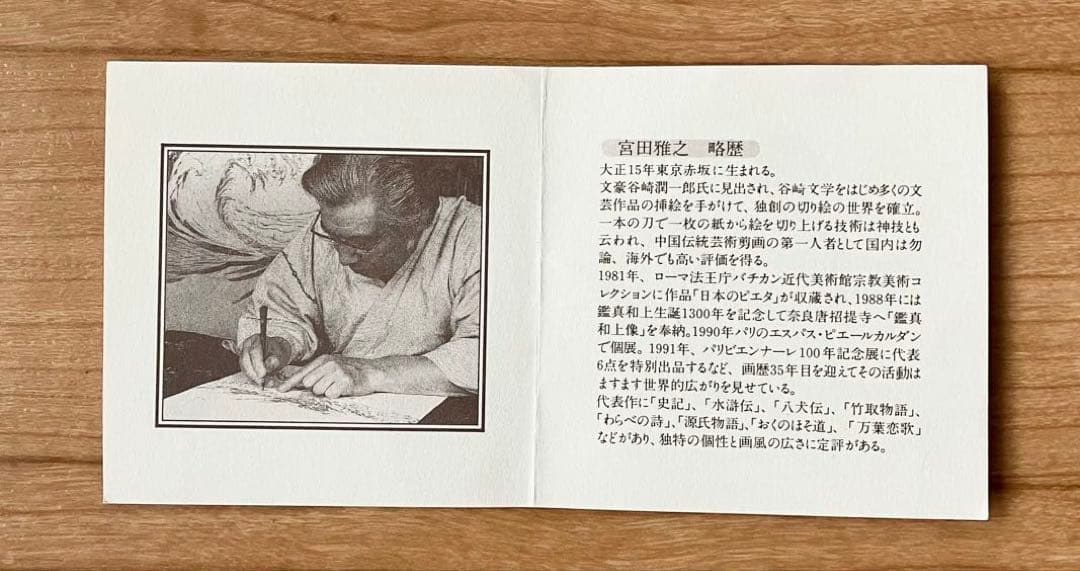 宮田雅之　略歴
大正15年東京赤坂に生まれる。
文豪谷崎潤一郎氏に見出され、谷崎文学をはじめ多くの文
芸作品の挿絵を手がけて、独創の切り絵の世界を確立。
一本の刀で一枚の紙から絵を切り上げる技術は神技とも
云われ、中国伝統芸術剪画の第一人者として国内は勿
論、海外でも高い評価を得る。
1981年、ローマ法王庁バチカン近代美術館宗教美術コ
レクションに作品「日本のピエタ」が収蔵され、1988年には
鑑真和上生誕1300年を記念して奈良唐招提寺へ「鑑真
和上像」を奉納。1990年パリのエスパス・ピエールカルダン
で個展。1991年、パリビエンナーレ100年記念展に代表
6点を特別出品するなど、画歴35年目を迎えてその活動は
ますます世界的広がりを見せている。
代表作に「史記」、「水滸伝」、「八犬伝」、「竹取物語」、
「わらべの詩」、「源氏物語」、「おくのほそ道」、「万葉恋歌」
などがあり、独特の個性と画風の広さに定評がある。